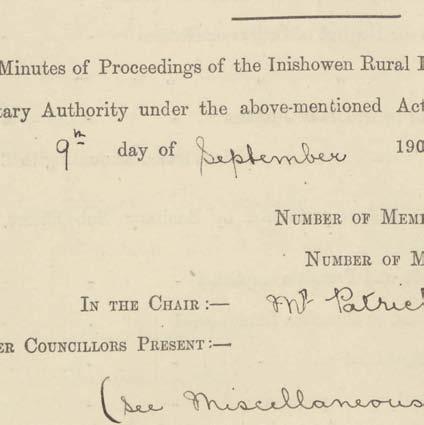 Minutes of Proceedings of the Inishowen Rural
tary Authority under the above-mentioned Act
9th day of September 190
NUMBER OF MEM
NUMBER OF M
IN THE CHAIR :— Mr Patric
ER COUNCILLORS PRESENT :—
(See Miscellaneous